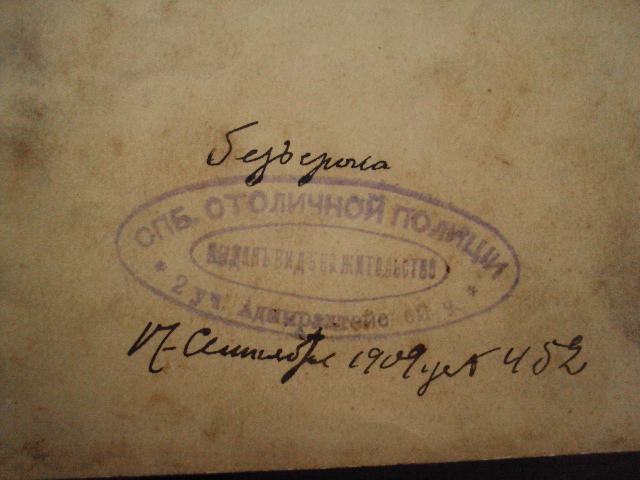 Безъ срока
СПБ. СТОЛИЧНОЙ ПОЛИЦІИ
ВЫДАНЪ ВИДЪ НА ЖИТЕЛЬСТВО
* 2 уч. Адмиралтейс ой ч. *
17 Сентября 1909 452